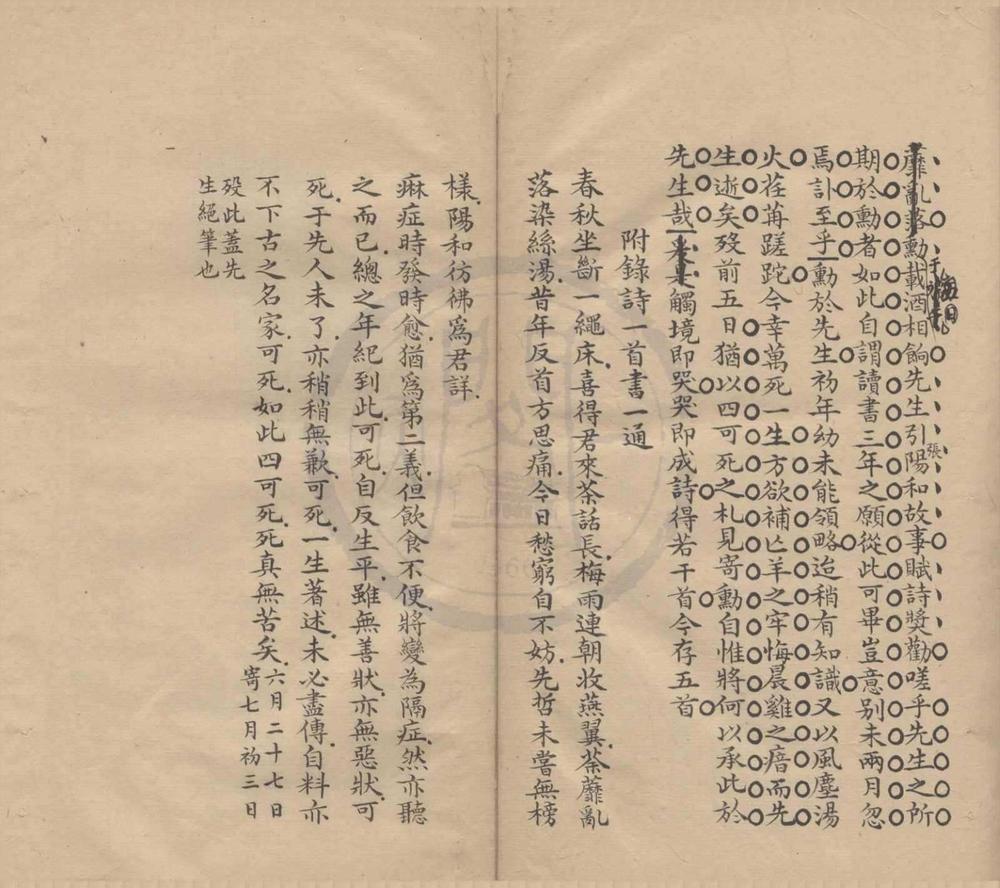 蘼亂落勳載酒相餉先生引陽和故事賦詩獎勸嗟乎先生之所
張
期於勳者如此自謂讀書三年之願從此可畢豈意別未兩月忽
焉訃至乎勳於先生初年幼未能領略迨稍有知識又以風塵湯
火荏苒蹉跎今幸萬死一生方欲補亡羊之牢悔晨雞之瘖而先
生逝矣歿前五日猶以四可死之札見寄勳自惟將何以承此於
先生哉觸境即哭哭即成詩得若干首今存五首
附錄詩一首書一通
春秋坐斷一繩床喜得君來茶話長梅雨連朝收燕翼荼蘼亂
落染絲湯昔年反首方思痛今日愁窮自不妨先哲未嘗無榜
樣陽和彷彿為君詳
痳症時發時愈猶為第二義但飲食不便將變為隔症然亦聽
之而已總之年紀到此可死自反生平雖無善狀亦無惡狀可
死于先人未了亦稍稍無歉可死一生著述未必盡傳自料亦
不下古之名家可死如此四可死死真無苦矣六月二十七日
寄七月初三日
歿此蓋先
生絕筆也